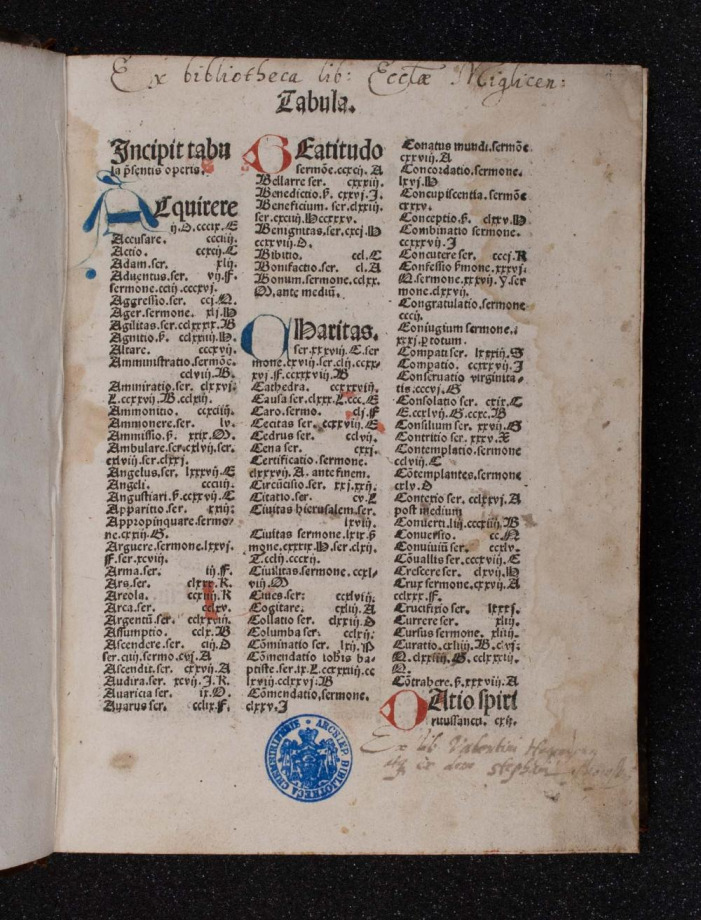 Ex bibliotheca lib: Eccłæ Miglicen:
Tabula.
Incipit tabu
la p̄sentis operis.
AEquirere
ij.D.cccix.E
Accusare. ccciij.
Actio. ccxcij.C
Adam.ser. xlij.
Aduentus.ser. vij.ff.
sermone.ccij.cccxvj.
Aggressio.ser. ccj.N.
Ager.sermone. xlj.H
Agilitas.ser.cclxxxix.B
Agnitio.ẜ. cclxxiij.H
Altare. cccxvij.
Amministratio.sermōe.
cclviij.B.
Ammiratio.ser. clxxvj.
L.ccxxvij.B.cclxiij.
Ammonitio. ccxciij.
Ammonere.ser. lv.
Ammissio.ẜ. xxix.M.
Ambulare.ser.cxlvij.ser.
exlviij.ser.clxxj.
Angelus.ser. lxxxvij.E
Angeli. ccciiij.
Angustiari.ẜ.ccxxvij.C
Apparitio.ser. xxij.
Appropinquare.sermo/
ne.cxij.G.
Arguere.sermone.lxxvj.
ff.ser.xcviij.
Arma.ser. iij.ff.
Ars.ser. clxxx.K.
Areola. R
Arca.ser. cclxv.
Argentū.ser.
Assumptio. cclx.B
Ascendere.ser. ciij.D
ser.ciij.sermo.cvj.A
Ascendit.ser. cxxvij.A
Audira.ser. xcvij.J.K.
Avaricia ser. ix.O.
Auarus ser. cclix.F.
BEatitudo
sermōe.ccxcij. A
Bellarre ser. cxxxiij.
Benedictio.ẜ. cxxvj.J.
Beneficium. ser.clxxiij.
ser.cxciij.H.ccxxxv.
Benignitas.ser.cxcj.H
ccxxviij.D.
Bibitio. ccl.C
Bonifactio.ser. cl.A
Bonum.sermone.cclxx.
M.ante mediū.
CHaritas.
ser.xxxviij.C.ser
mone.lxviij.ser.clij.ccxx/
xvj.ff.ccxxxviij.B
Cathedra. ccxxxviij.
Causa ser.clxxx.L.ccc.E
Caro.sermo. clj.F
Cecitas ser. ccxxvij.E
Cedrus ser. cclvij.
Cena ser. cxxj.
Certificatio.sermone.
clxxxvij.A. ante finem.
Circūcisio ser. xxj.xxij.
Citatio.ser. cv.L
Ciuitas hierusalem.ser.
lxviij.
Ciuitas sermone.lxix.ẜ
mone.cxxxix.H.ser.clxij.
T.cclij.cccxij.
Ciuilitas.sermone.ccxl/
viij.M
Ciues.ser: ccxlviij.
Cogitare. cxliij.A
Collatio ser. clxxiij.D
Columba ser: cclxij.
Cōminatio ser. lxij.P
Cōmendatio iohis ba/
ptiste.ser.ix.L.ccxxxiij.cc
lxviij.cclxxvj.B
Cōmendatio.sermone.
clxxv.J
Conatus mundi.sermōe
cxxviij.A
Concordatio.sermone.
lxvj.H
Concupiscentia.sermōe
cxxxv.
Conceptio.ẜ. clxxv.H
Combinatio sermone.
ccxxxvij.J
Concutere ser. cccj.R
Confessio ẜmone.xxxvj.
N.sermone.xxvij.ȳ.ser
mone.clxxvij.
Congratulatio.sermone
cccij.
Coniugium sermone.i
xxxj.ꝑ totum.
Compati ser. lxxxiij.S
Compatio. ccxxvij.J
Conseruatio virginita/
tis.cccvj.G
Consolatio ser. cxix.C
E.ccxlvij.G.ccxc.B
Consilium ser. xxvij.G
Contritio ser. xxv.X
Contemplatio.sermone
cclvij.C
Cōtemplantes.sermone
cxlv.D
Contexio ser. cclxxvj.A
post medium
Conuerti.liij.cccxiiij.B
Conuersio. cc.N
Conuiuiū ser. ccxlv.
Cōuallis ser.cccxviij.E
Crescere ser. clxvij.H
Crux sermone.cxvij.A
cclxxx.ff.
Crucifixio ser. lxxxj.
Currere ser. xliij.
Cursus sermone. xliij.
Curatio.cxliij.B.clvj.
N.clxxiij.G.cclxxxij.
N.
Cōtrahere.ẜ.xxxviij.A
DAtio spiri
tuussancti. cxij.
Ex lib Valentini
ex dono stephani
BIBLIOTHECA CHREMSIRIENSIS • ARCHIEP.